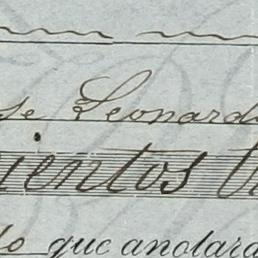 se Leonard
ientos
do que anotara